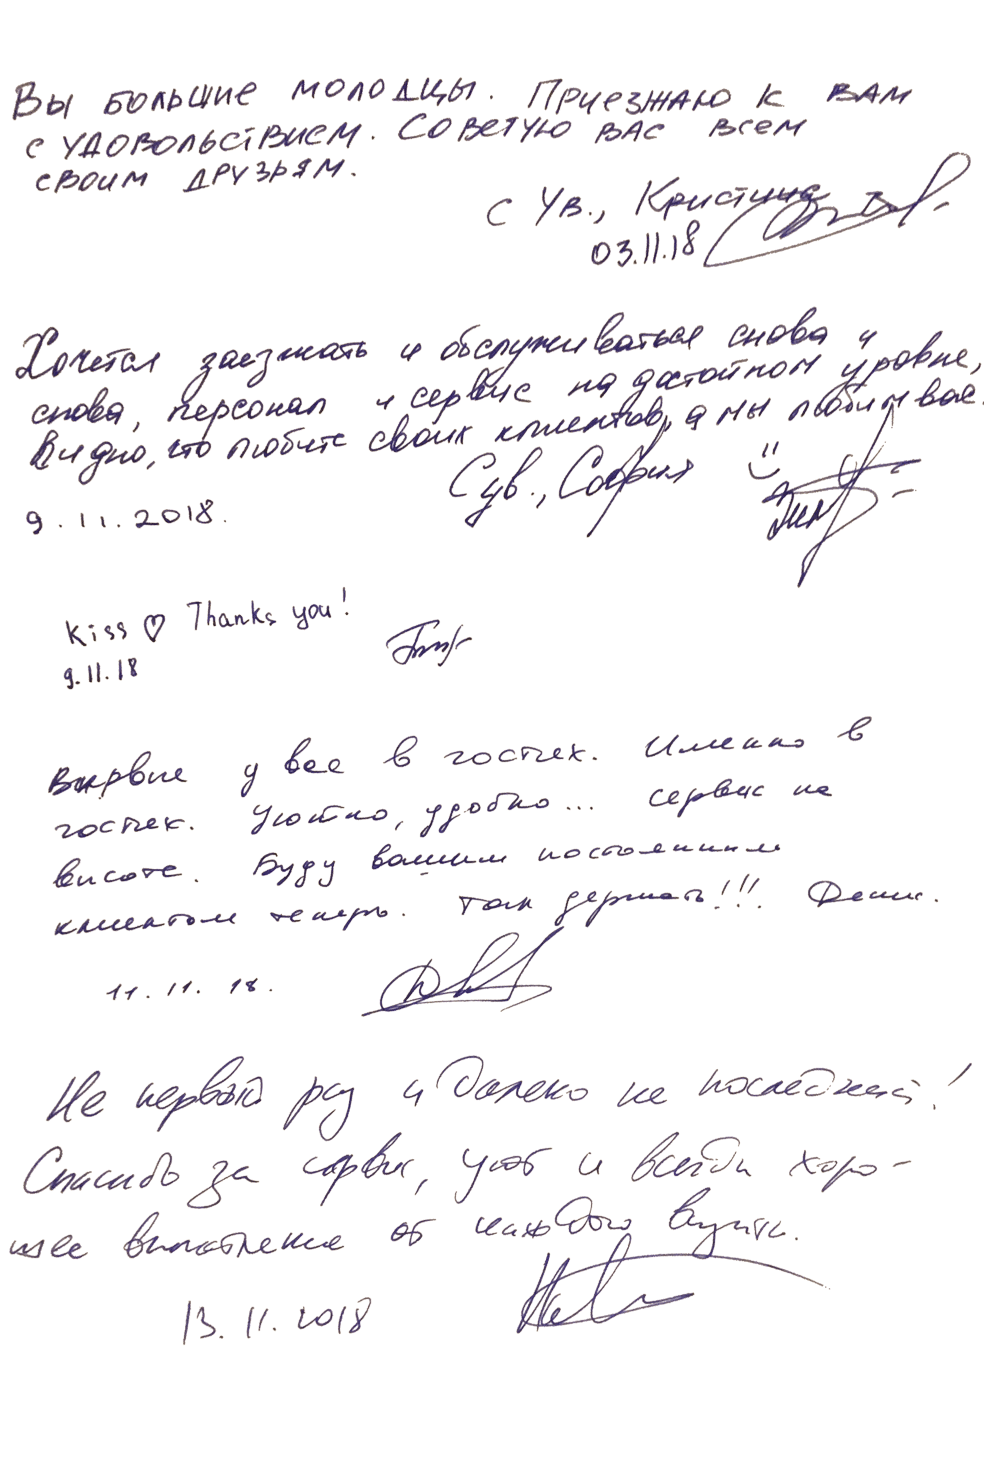 Вы большие молодцы. Приезжаю к вам
с удовольствием. Советую вас всем
своим друзьям.
С Ув., Кристина
03.11.18
Хочется заезжать и обслуживаться снова и
снова, персонал и сервис на достойном уровне,
Видно, что любите своих клиентов, а мы любим вас.
С ув., София
9.11.2018.
Kiss ♡ Thanks you!
9.11.18
Впервые у вас в гостях. Именно в
гостях. Уютно, удобно... сервис на
высоте. Буду вашим постоянным
клиентом теперь. Так держать!!! Денис.
11.11.18.
Не первый раз и далеко не последний!
Спасибо за сервис, уют и всегда хоро-
шее впечатление от каждого визита.
13.11.2018